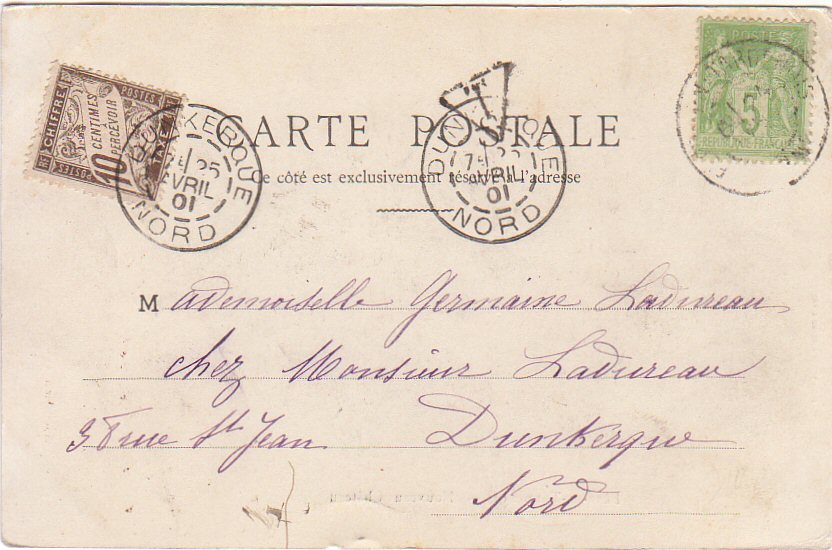 CHIFFRE
POSTES
10 CENTIMES
PERCEVOIR
TAXE
POSTES
DUNKERQUE
25
AVRIL
01
NORD
T
DUNKERQUE
25
AVRIL
01
NORD
POSTE
5
REPUBLIQUE FRANÇAISE
CARTE POSTALE
Ce côté est exclusivement réservé à l'adresse
Mademoiselle Germaine Ladureau
chez Monsieur Ladureau
rue St Jean Dunkerque
Nord